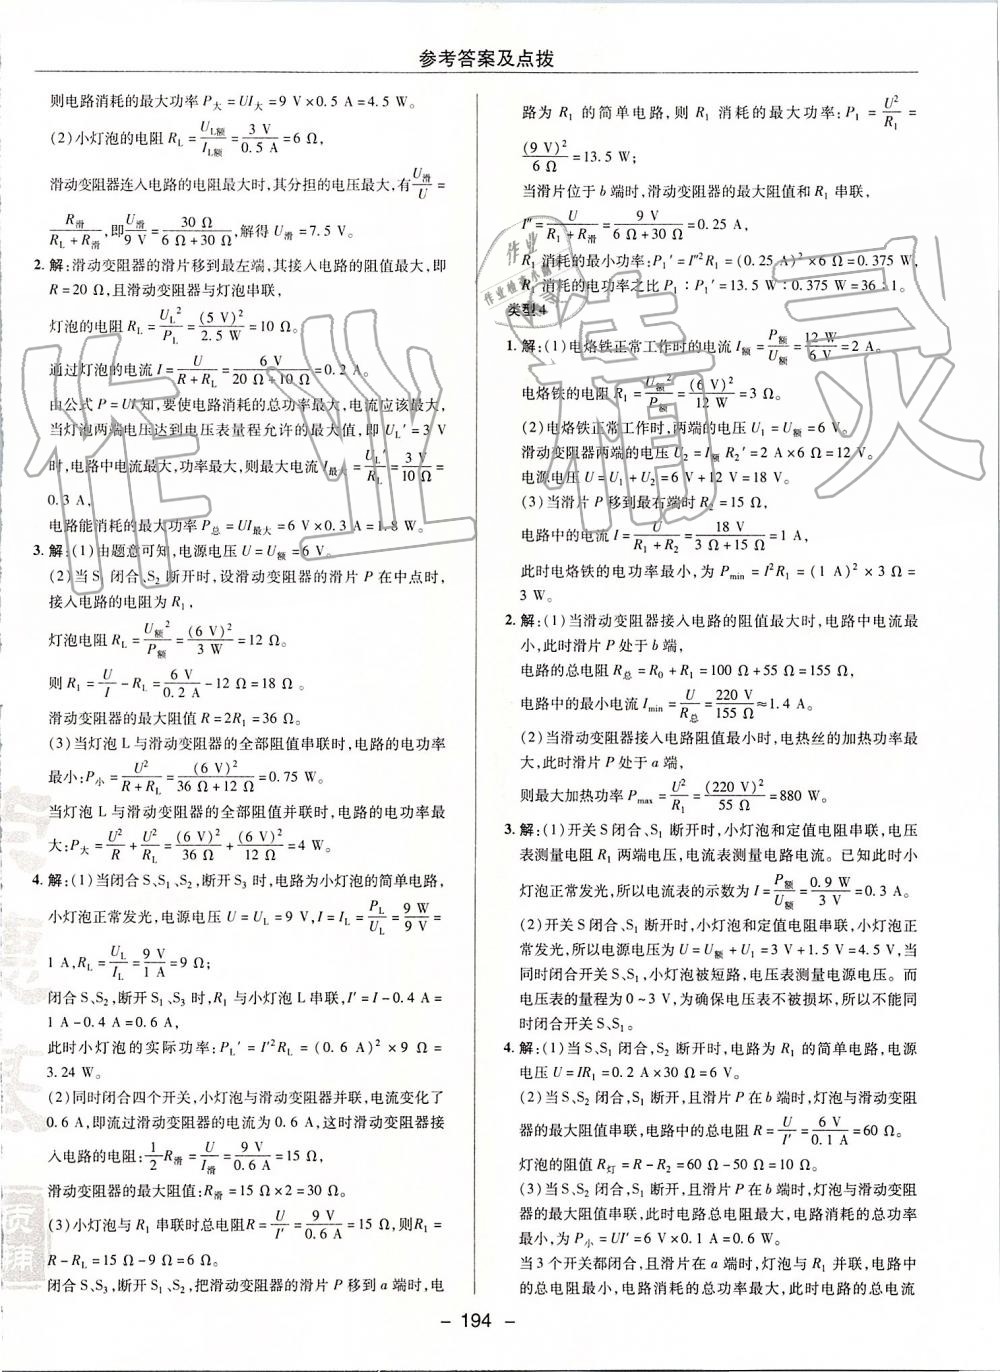 参考答案及点拨
则电路消耗的最大功率 P大 = UI大 = 9 V×0.5 A = 4.5 W。
(2)小灯泡的电阻 RL = UL额/IL额 = 3 V/0.5 A = 6 Ω,
滑动变阻器连入电路的电阻最大时,其分担的电压最大,有 U滑/U =
R滑/(RL + R滑),即 U滑/9 V = 30 Ω/(6 Ω+30 Ω),解得 U滑 = 7.5 V。
2. 解:滑动变阻器的滑片移到最左端,其接入电路的阻值最大,即
R = 20 Ω,且滑动变阻器与灯泡串联,
灯泡的电阻 RL = UL²/PL = (5 V)²/2.5 W = 10 Ω,
通过灯泡的电流 I = U/(R + RL) = 6 V/(20 Ω+10 Ω) = 0.2 A。
由公式 P = UI 知,要使电路消耗的总功率最大,电流应该最大,
当灯泡两端电压达到电压表量程允许的最大值,即 UL′ = 3 V
时,电路中电流最大,功率最大,则最大电流 I最大 = UL′/RL = 3 V/10 Ω =
0.3 A,
电路能消耗的最大功率 P总 = UI最大 = 6 V×0.3 A = 1.8 W。
3. 解:(1)由题意可知,电源电压 U = U额 = 6 V。
(2)当 S1 闭合、S2 断开时,设滑动变阻器的滑片 P 在中点时,
接入电路的电阻为 R1,
灯泡电阻 RL = U额²/P额 = (6 V)²/3 W = 12 Ω。
则 R1 = U/I − RL = 6 V/0.2 A − 12 Ω = 18 Ω。
滑动变阻器的最大阻值 R = 2R1 = 36 Ω。
(3)当灯泡 L 与滑动变阻器的全部阻值串联时,电路的电功率
最小:P小 = U²/(R + RL) = (6 V)²/(36 Ω+12 Ω) = 0.75 W。
当灯泡 L 与滑动变阻器的全部阻值并联时,电路的电功率最
大:P大 = U²/R + U²/RL = (6 V)²/36 Ω + (6 V)²/12 Ω = 4 W。
4. 解:(1)当闭合 S、S1、S2,断开 S3 时,电路为小灯泡的简单电路,
小灯泡正常发光,电源电压 U = UL = 9 V,I = IL = PL/UL = 9 W/9 V =
1 A,RL = UL/IL = 9 V/1 A = 9 Ω;
闭合 S、S2,断开 S1、S3 时,R1 与小灯泡 L 串联,I′ = I − 0.4 A =
1 A − 0.4 A = 0.6 A,
此时小灯泡的实际功率:PL′ = I′²RL = (0.6 A)²×9 Ω =
3.24 W。
(2)同时闭合四个开关,小灯泡与滑动变阻器并联,电流变化了
0.6 A,即流过滑动变阻器的电流为 0.6 A,这时滑动变阻器接
入电路的电阻:1/2 R滑 = U/I滑 = 9 V/0.6 A = 15 Ω,
滑动变阻器的最大阻值:R滑 = 15 Ω×2 = 30 Ω。
(3)小灯泡与 R1 串联时总电阻 R = U/I′ = 9 V/0.6 A = 15 Ω,则R1 =
R − RL = 15 Ω − 9 Ω = 6 Ω;
闭合 S、S3,断开 S1、S2,把滑动变阻器的滑片 P 移到 a 端时,电
路为 R1 的简单电路,则 R1 消耗的最大功率:P1 = U²/R1 =
(9 V)²/6 Ω = 13.5 W;
当滑片位于 b 端时,滑动变阻器的最大阻值和 R1 串联,
I″ = U/(R1 + R滑) = 9 V/(6 Ω+30 Ω) = 0.25 A,
R1 消耗的最小功率:P1′ = I″²R1 = (0.25 A)²×6 Ω = 0.375 W,
R1 消耗的电功率之比 P1∶P1′ = 13.5 W∶0.375 W = 36∶1。
类型4
1. 解:(1)电烙铁正常工作时的电流 I额 = P额/U额 = 12 W/6 V = 2 A。
电烙铁的电阻 R1 = U额²/P额 = (6 V)²/12 W = 3 Ω。
(2)电烙铁正常工作时,两端的电压 U1 = U额 = 6 V。
滑动变阻器两端的电压 U2 = I额 R2′ = 2 A×6 Ω = 12 V。
电源电压 U = U1 + U2 = 6 V+12 V = 18 V。
(3)当滑片 P 移到最右端时 R2 = 15 Ω,
电路中的电流 I = U/(R1 + R2) = 18 V/(3 Ω+15 Ω) = 1 A,
此时电烙铁的电功率最小,为 Pmin = I²R1 = (1 A)²×3 Ω =
3 W。
2. 解:(1)当滑动变阻器接入电路的阻值最大时,电路中电流最
小,此时滑片 P 处于 b 端,
电路的总电阻 R总 = R0 + R1 = 100 Ω+55 Ω = 155 Ω,
电路中的最小电流 Imin = U/R总 = 220 V/155 Ω ≈ 1.4 A。
(2)当滑动变阻器接入电路阻值最小时,电热丝的加热功率最
大,此时滑片 P 处于 a 端,
则最大加热功率 Pmax = U²/R1 = (220 V)²/55 Ω = 880 W。
3. 解:(1)开关 S 闭合、S1 断开时,小灯泡和定值电阻串联,电压
表测量电阻 R1 两端电压,电流表测量电路电流。已知此时小
灯泡正常发光,所以电流表的示数为 I = P额/U额 = 0.9 W/3 V = 0.3 A。
(2)开关 S 闭合、S1 断开时,小灯泡和定值电阻串联,小灯泡正
常发光,所以电源电压为 U = U额 + U1 = 3 V+1.5 V = 4.5 V,当
同时闭合开关 S、S1,小灯泡被短路,电压表测量电源电压。而
电压表的量程为 0~3 V,为确保电压表不被损坏,所以不能同
时闭合开关 S、S1。
4. 解:(1)当 S、S1 闭合,S2 断开时,电路为 R1 的简单电路,电源
电压 U = IR1 = 0.2 A×30 Ω = 6 V。
(2)当 S、S2 闭合,S1 断开,且滑片 P 在 b 端时,灯泡与滑动变阻
器的最大阻值串联,电路中的总电阻 R = U/I′ = 6 V/0.1 A = 60 Ω。
灯泡的阻值 R灯 = R − R2 = 60 Ω − 50 Ω = 10 Ω。
(3)当 S、S2 闭合,S1 断开,且滑片 P 在 b 端时,灯泡与滑动变阻
器的最大阻值串联,此时电路总电阻最大,电路消耗的总功率
最小,为 P小 = UI′ = 6 V×0.1 A = 0.6 W。
当 3 个开关都闭合,且滑片在 a 端时,灯泡与 R1 并联,电路中
的总电阻最小,电路消耗的总功率最大,此时电路的总电流
– 194 –
作业精灵